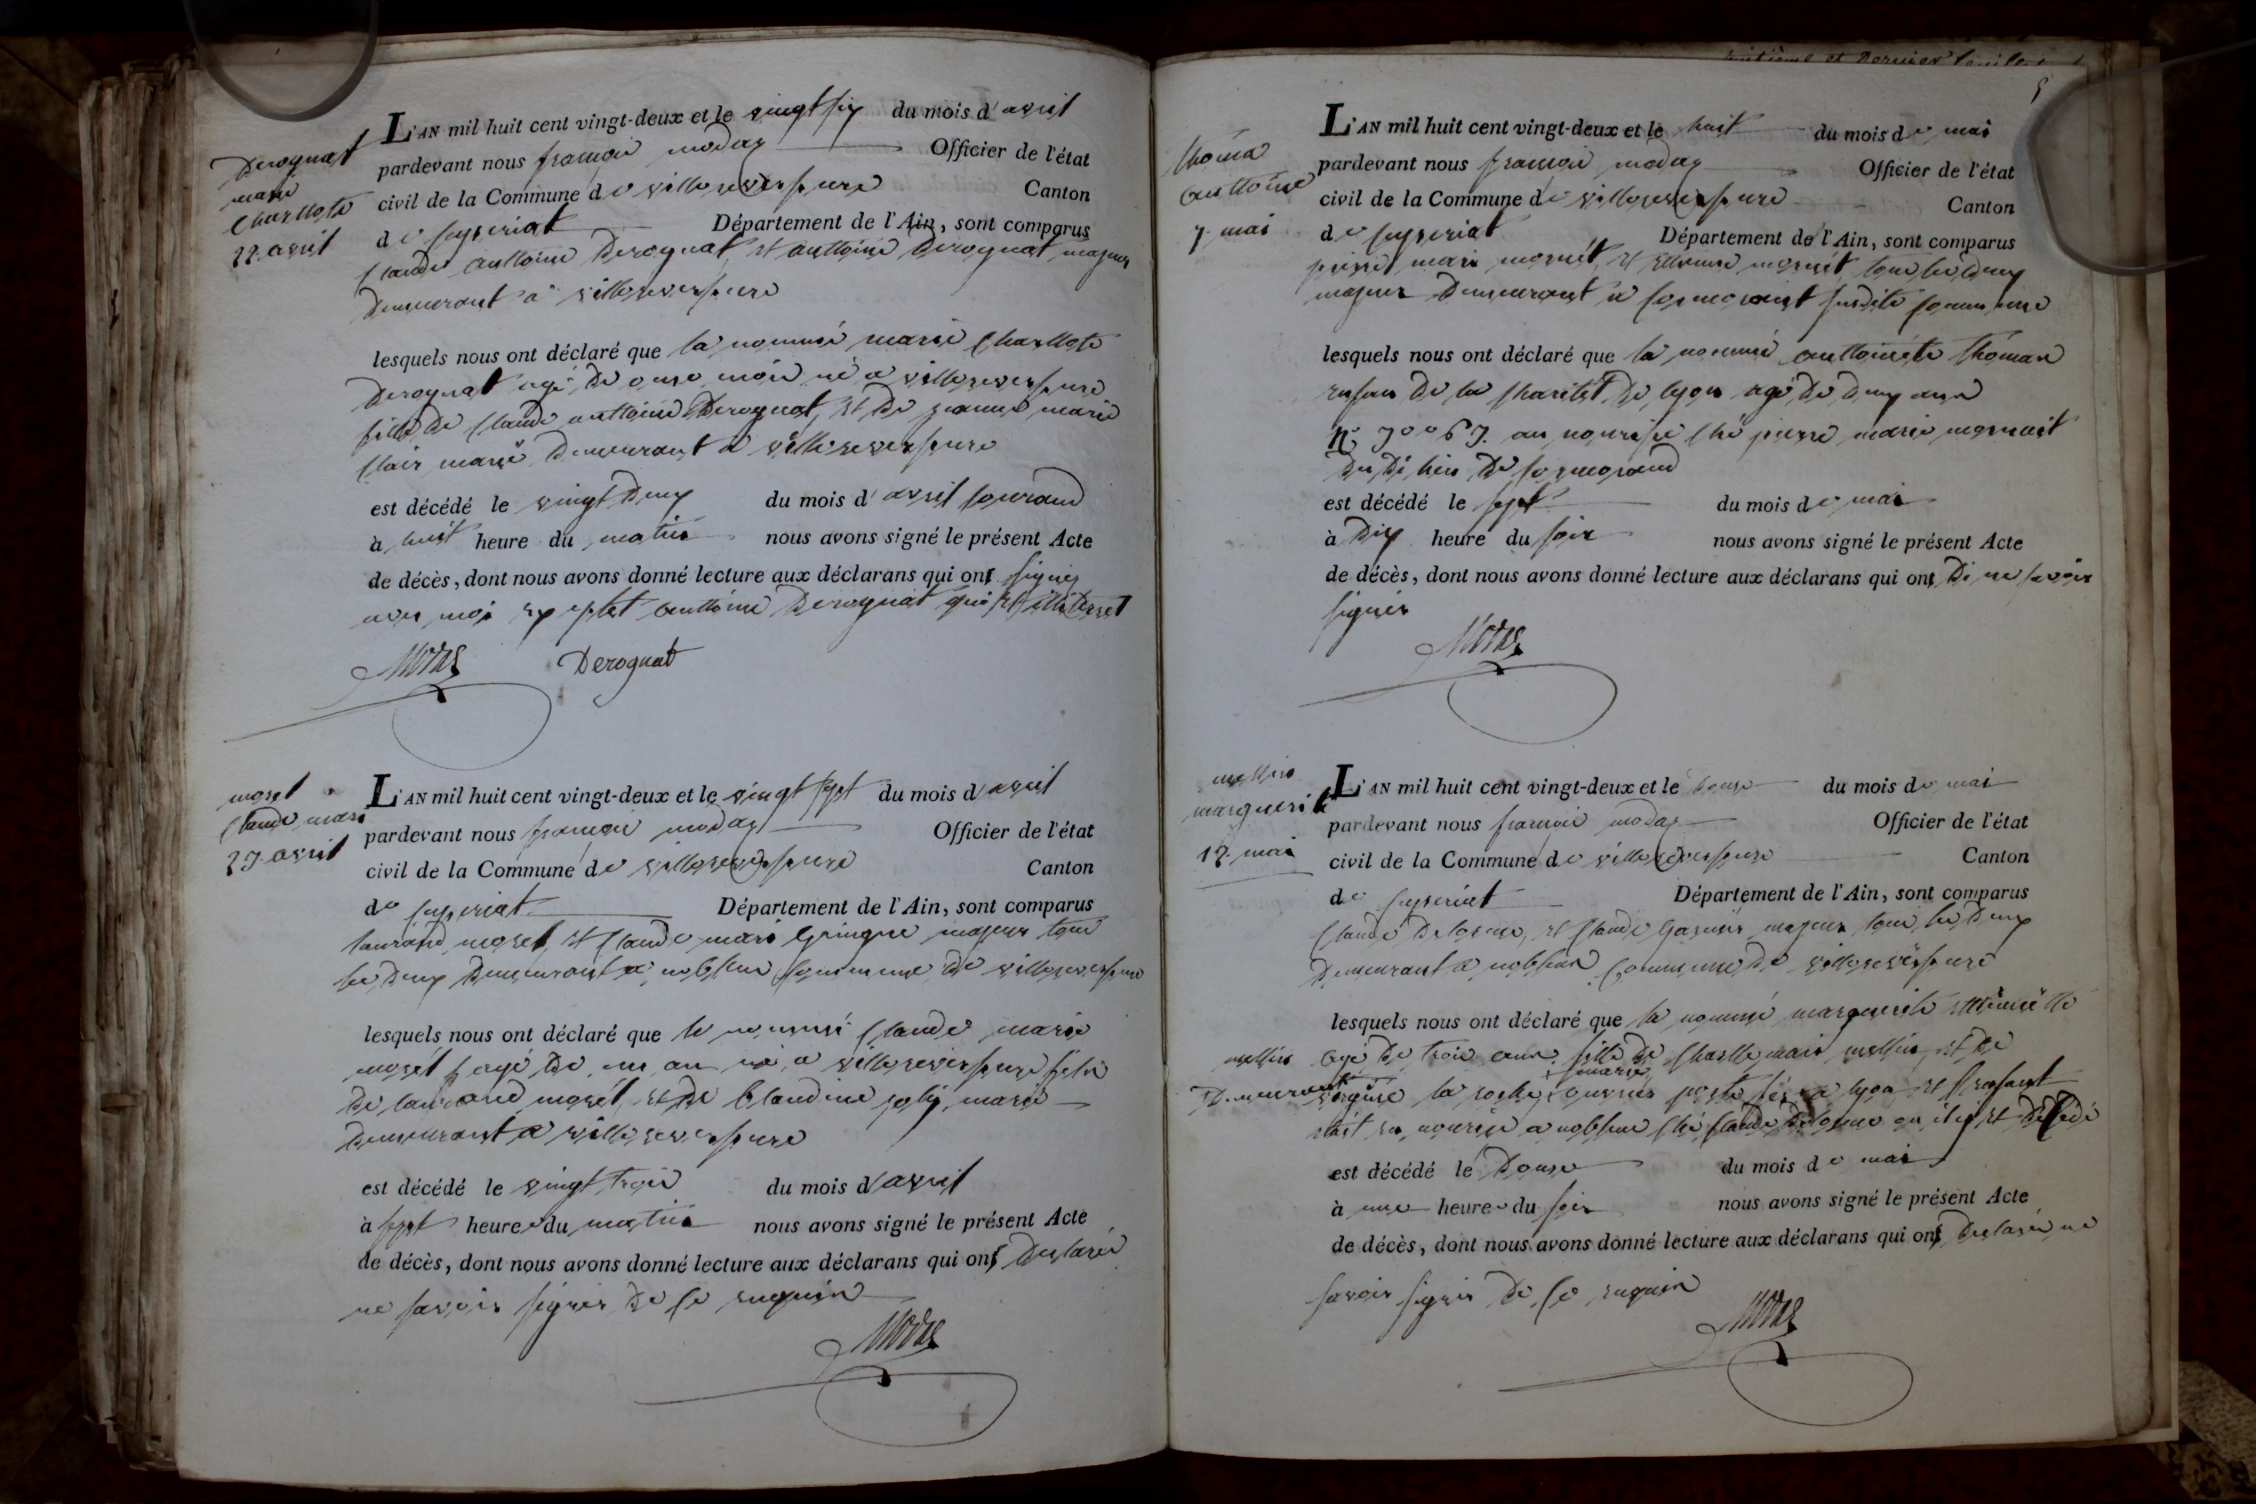 Derognat
marie
Charllote
22 avril
L'AN mil huit cent vingt-deux et le vingt six du mois d'avril
pardevant nous françois modas Officier de l'état
civil de la Commune de villereversure Canton
de Ceyseriat Département de l'Ain, sont comparus
Claude anttoine Derognat, et anttoine Derognat majeur
Demeurant a villereversure
lesquels nous ont déclaré que la nommé marie Charllote
Derognat agé de onze mois né a villereversure
fille de Claude anttoine Derognat, et de jeanne marie
Clair marié Demeurant a villereversure
est décédé le vingt deux du mois d'avril courand
à huit heure du matin nous avons signé le présent Acte
de décès, dont nous avons donné lecture aux déclarans qui ont signés
avec moi anttoine Derognat qui est
Modas Derognat
moret
Claude mari
23 avril
L'AN mil huit cent vingt-deux et le vingt sept du mois d'avril
pardevant nous françois modas Officier de l'état
civil de la Commune de villereversure Canton
de Ceyseriat Département de l'Ain, sont comparus
laurand moret, et Claude mari majeur tous
les deux Demeurant a noblens Commune de villereversure
lesquels nous ont déclaré que le nommé Claude marie
moret agé de un an né a villereversure fils
de laurand moret, et de Claudine joly marié
Demeurant a villereversure
est décédé le vingt trois du mois d'avril
à sept heure du matin nous avons signé le présent Acte
de décès, dont nous avons donné lecture aux déclarans qui ont Declaré
ne savoir signer de ce requis
Modas
5
thoma
anttoine
7 mai
L'AN mil huit cent vingt-deux et le huit du mois de mai
pardevant nous françois modas Officier de l'état
civil de la Commune de villereversure Canton
de Ceyseriat Département de l'Ain, sont comparus
pierre mari et tous les deux
majeur Demeurant a susdite Commune
lesquels nous ont déclaré que la nommé anttoinete thoman
enfan de la charité de lyon agé de deux ans
N° au nourise ché pierre marie
du di lieu de
est décédé le sept du mois de mai
à Dix heure du soir nous avons signé le présent Acte
de décès, dont nous avons donné lecture aux déclarans qui ont Di ne savoir
signer
Modas
mellin
marguerite
12 mai
L'AN mil huit cent vingt-deux et le douze du mois de mai
pardevant nous françois modas Officier de l'état
civil de la Commune de villereversure Canton
de Ceyseriat Département de l'Ain, sont comparus
Claude Delorme, et Claude majeur tous les deux
Demeurant a noblens Commune de villereversure
lesquels nous ont déclaré que la nommé marguerite
mellin agé de trois ans fille de Charlle mari mellin et de
marié
Demeurant la roche ouvrier a lyon et l'enfant
etait en nourice a noblens ché Claude Delorme ou il est décédé
est décédé le Douze du mois de mai
à une heure du soir nous avons signé le présent Acte
de décès, dont nous avons donné lecture aux déclarans qui ont Declaré ne
savoir signer de ce requis
Modas